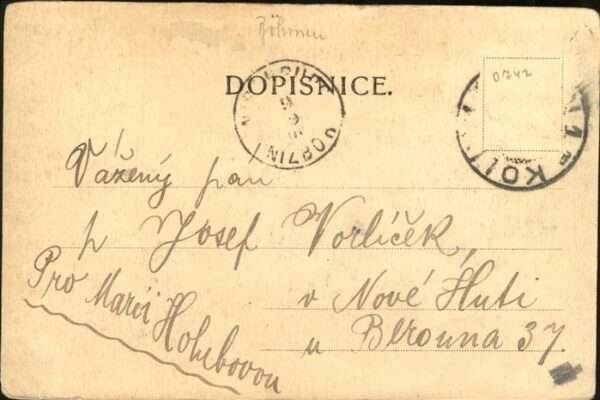 Böhmen
DOPISNICE.
0742
KOLÍN
Vážený pán
p Josef Vorlíček,
v Nové Huti
u Berouna 37
Pro Marii Holubovou